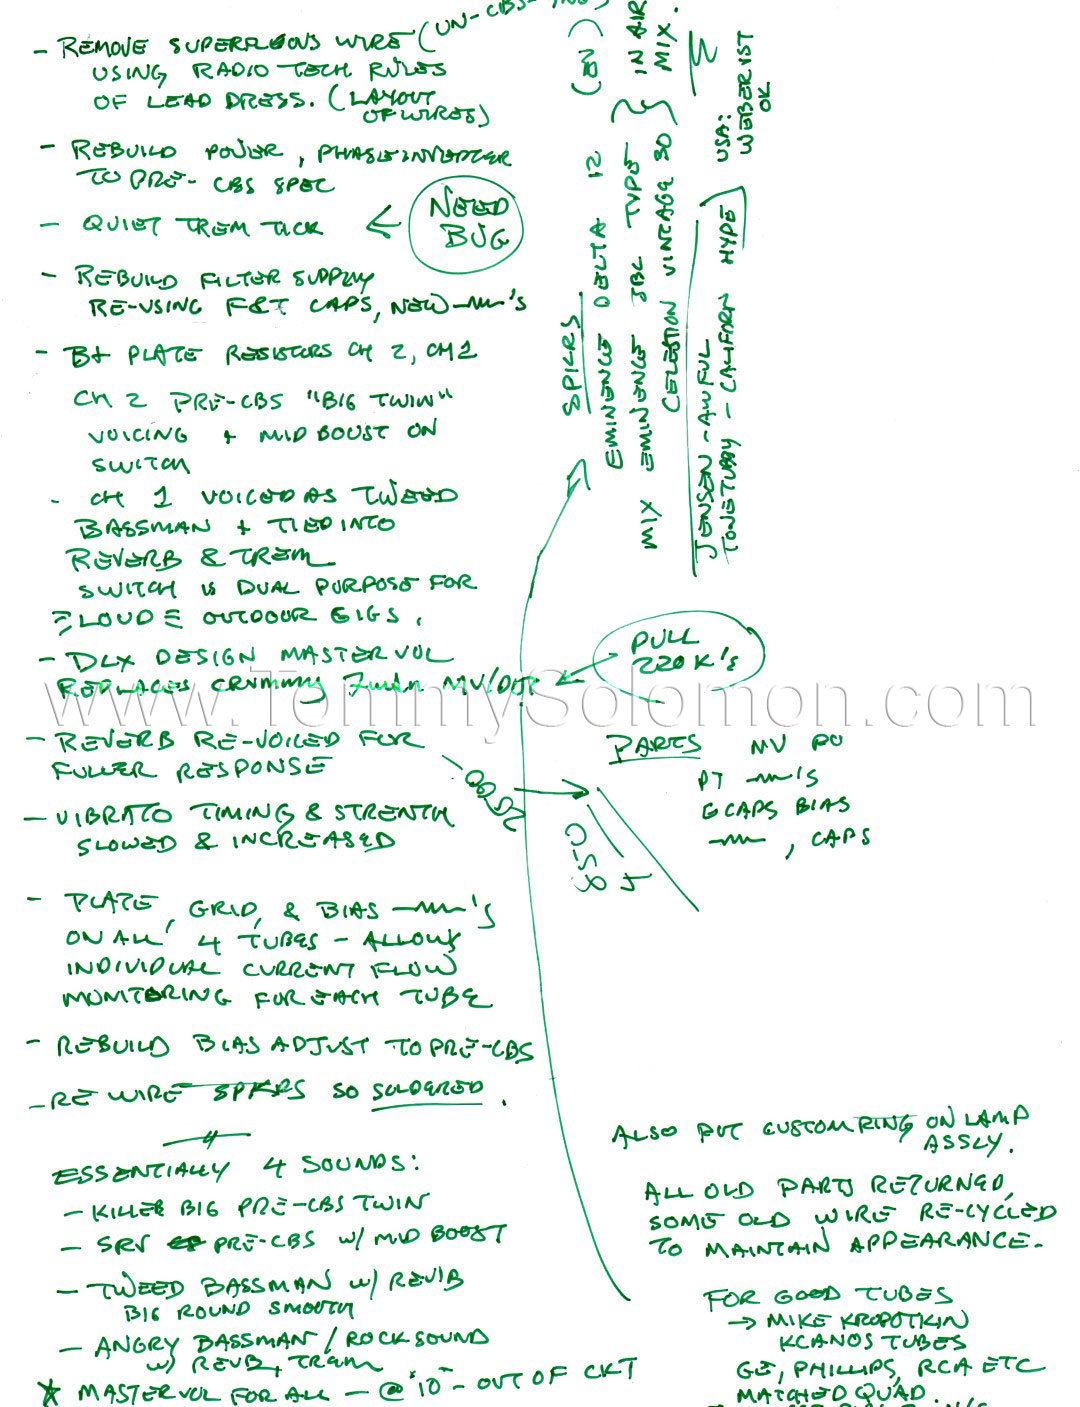 - REMOVE SUPERFLOUS WIRE (UN-CBS-
USING RADIO TECH RULES
OF LEAD DRESS. (LAYOUT
OF WIRES)
- REBUILD POWER, PHASE INVERTER
TO PRE-CBS SPEC
- QUIET TREM TICK
NEED
BUG
- REBUILD FILTER SUPPLY
RE-USING F&T CAPS, NEW 's
- B+ PLATE RESISTORS CH 2, CH 1
CH 2 PRE-CBS "BIG TWIN"
VOICING + MID BOOST ON
SWITCH
- CH 1 VOICED AS TWEED
BASSMAN + TIED INTO
REVERB & TREM
SWITCH IS DUAL PURPOSE FOR
LOUD OUTDOOR GIGS.
- DLX DESIGN MASTER VOL
REPLACES CRUMMY MV/
PULL
220K's
- REVERB RE-VOICED FOR
FULLER RESPONSE
- VIBRATO TIMING & STRENTH
SLOWED & INCREASED
- PLATE, GRID, & BIAS 's
ON ALL 4 TUBES - ALLOWS
INDIVIDUAL CURRENT FLOW
MONITORING FOR EACH TUBE
- REBUILD BIAS ADJUST TO PRE-CBS
- REWIRE SPKRS SO SOLDERED.
ESSENTIALLY 4 SOUNDS:
- KILLER BIG PRE-CBS TWIN
- SRV PRE-CBS W/ MID BOOST
- TWEED BASSMAN W/ REVIB
BIG ROUND SMOOTH
- ANGRY BASSMAN / ROCK SOUND
W/ REVB, TREM
MASTER VOL FOR ALL - @ "10" - OUT OF CKT
SPKRS
EMINENCE DELTA 12 (EN)
MIX EMINENCE JBL TYPE
CELESTION VINTAGE 30
IN AIR
MIX.
JENSEN - AWFUL
TONETUBBY - CALIFORN HYPE
USA:
WEBER IST
OK
www.TommySolomon.com
PARTS MV PO
PT 's
6 CAPS BIAS
, CAPS
ALSO PUT CUSTOM RING ON LAMP
ASSLY.
ALL OLD PARTS RETURNED,
SOME OLD WIRE RE-CYCLED
TO MAINTAIN APPEARANCE.
FOR GOOD TUBES
→ MIKE KROPOTKIN
KCANOS TUBES
GE, PHILLIPS, RCA ETC
MATCHED QUAD.